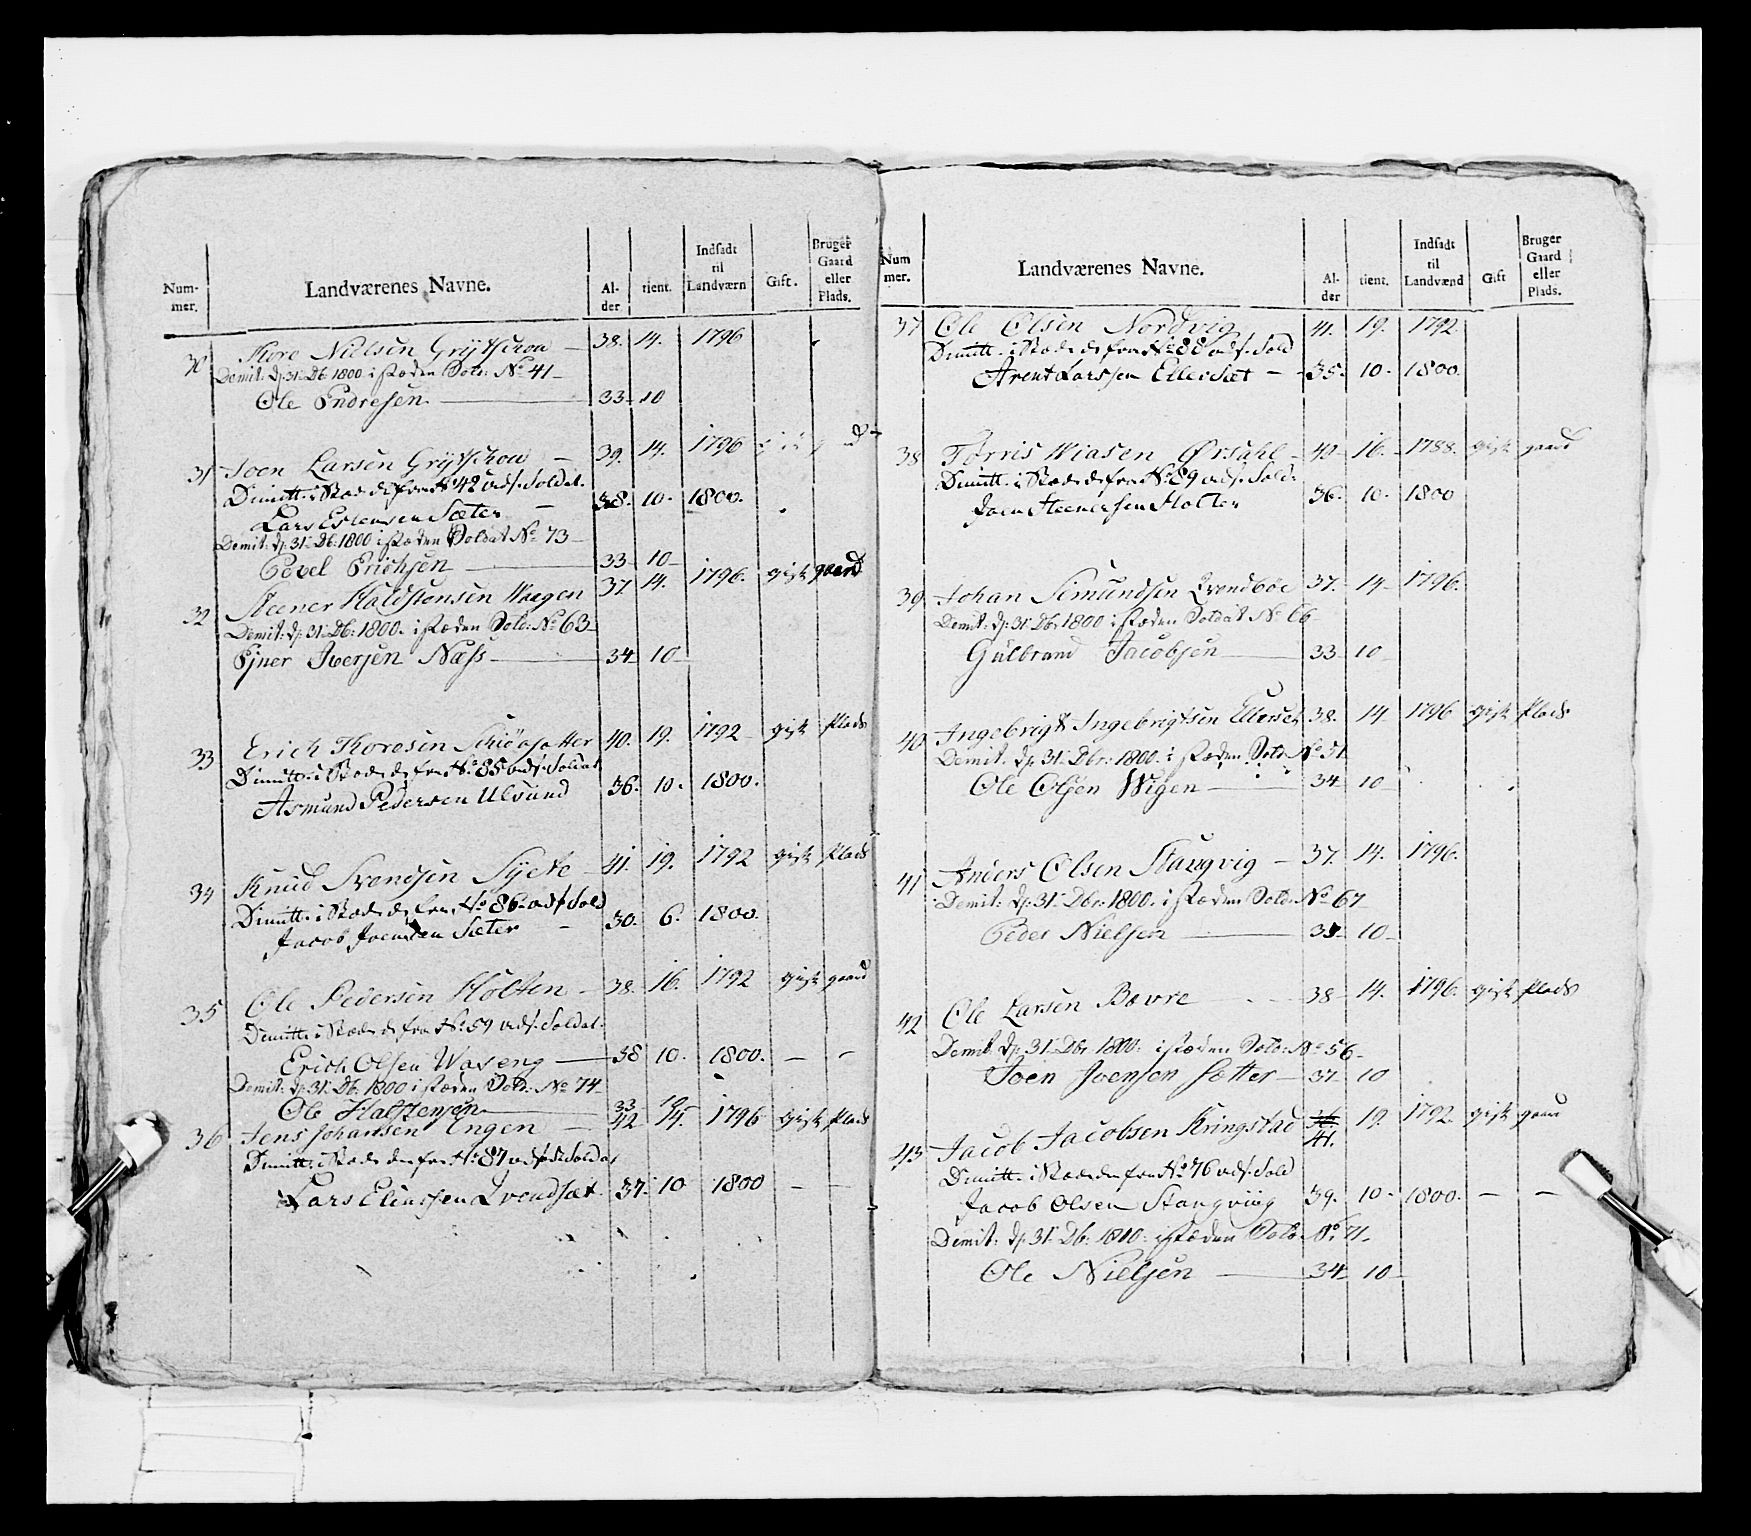 Num-
mer.
Landværenes Navne.
Al-
der
tient.
Indsadt
til
Landværn
Gift.
Bruger
Gaard
eller
Plads.
30 Thore Nielsen 38. 14. 1796
Demit: d: 31 Db: 1800 i stæden Sold: No 41
Ole Endresen 33 10
31 Joen Larsen 39. 14. 1796
Dimitt. i Stæde de fra No 42 Soldat.
Lars Estensen Sæter 38. 10. 1800.
Demit: d: 31 Db: 1800 i stæden Soldat No 73
Povel Erichsen 33 10
32 Steener Haldstensen Waagen 37 14. 1796. gift gaard
Demit: d: 31 Db: 1800. i stæden Sold: No 63
Ejner Iversen Næss 34 10
33 Erich Thoresen 40. 19. 1792 gift plads
Dimitt. i Stæde de fra No 85 Soldat
Asmund Pedersen Ulsund 36. 10. 1800.
34 Knud Svendsen 41. 19. 1792 gift plads
Dimitt. i Stæde de fra No 86 Sold
Jacob Joensen Sæter 30. 6. 1800.
35 Ole Pedersen Holten 38. 16. 1792 gift gaard
Dimitt. i Stæde de fra No 59 Soldat.
Erich Olsen Waseng 38 10. 1800.
Demit: d: 31 Db: 1800 i stæden Sold: No 74
Ole Halstensen 33 10
36 Jens Johansen Engen 42 14. 1796 gift plads
Dimitt. i Stæde de fra No 87 Soldat
Lars 37. 10 1800
Num
mer.
Landværenes Navne.
Al-
der
tient.
Indsadt
til
Landværnd
Gift
Bruger
Gaard
eller
Plads.
37 Ole Olsen Nordvig 41. 19. 1792
Dimitt. i Stæde de fra No 88 Sold
Arent Larssen Ellersæt 35. 10. 1800.
38 Tørris 42 16. 1788. gift gaard
Dimitt. i Stæde de fra No 89 Sold.
Joen Steenersen Holten 36. 10. 1800
39 Johan Simundsen 37. 14 1796.
Demit: d: 31 Db: 1800 i stæden Soldat No 66
Gulbrand Jacobsen 33 10
40 Ingebrigt Ingebrigtsen Ellerset 38. 14 1796 gift plads
Demit. d: 31 Dbr: 1800. i stæden Sold: No 51
Ole Olsen Wigen 34 10
41 Anders Olsen Stangvig 37. 14. 1796.
Demit: d: 31 Dbr: 1800. i stæden Sold: No 67
Peder Nielsen 10
42 Ole Larsen Bævre 38 14. 1796. gift plads
Demit d: 31 Dbr 1800. i stæden Sold: No 56
Joen Joensen Sætter 37 10
43 Jacob Jacobsen Kringstad 41. 19. 1792. gift gaard
Dimitt. i Stæde de fra No 76 Sold
Jacob Olsen Stangviig 39. 10. 1800.
Demit: d: 31 Db: 1800. i stæden Sold: No 71
Ole Nielsen 34 10